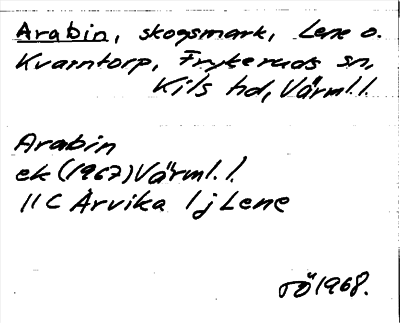 Arabin, skogsmark, Lene o.
Kvarntorp, Frykeruds sn,
Kils hd, Värml. l.
Arabin
ek (1967) Värml. l.
11 C Arvika 1j Lene
TÖ 1968.